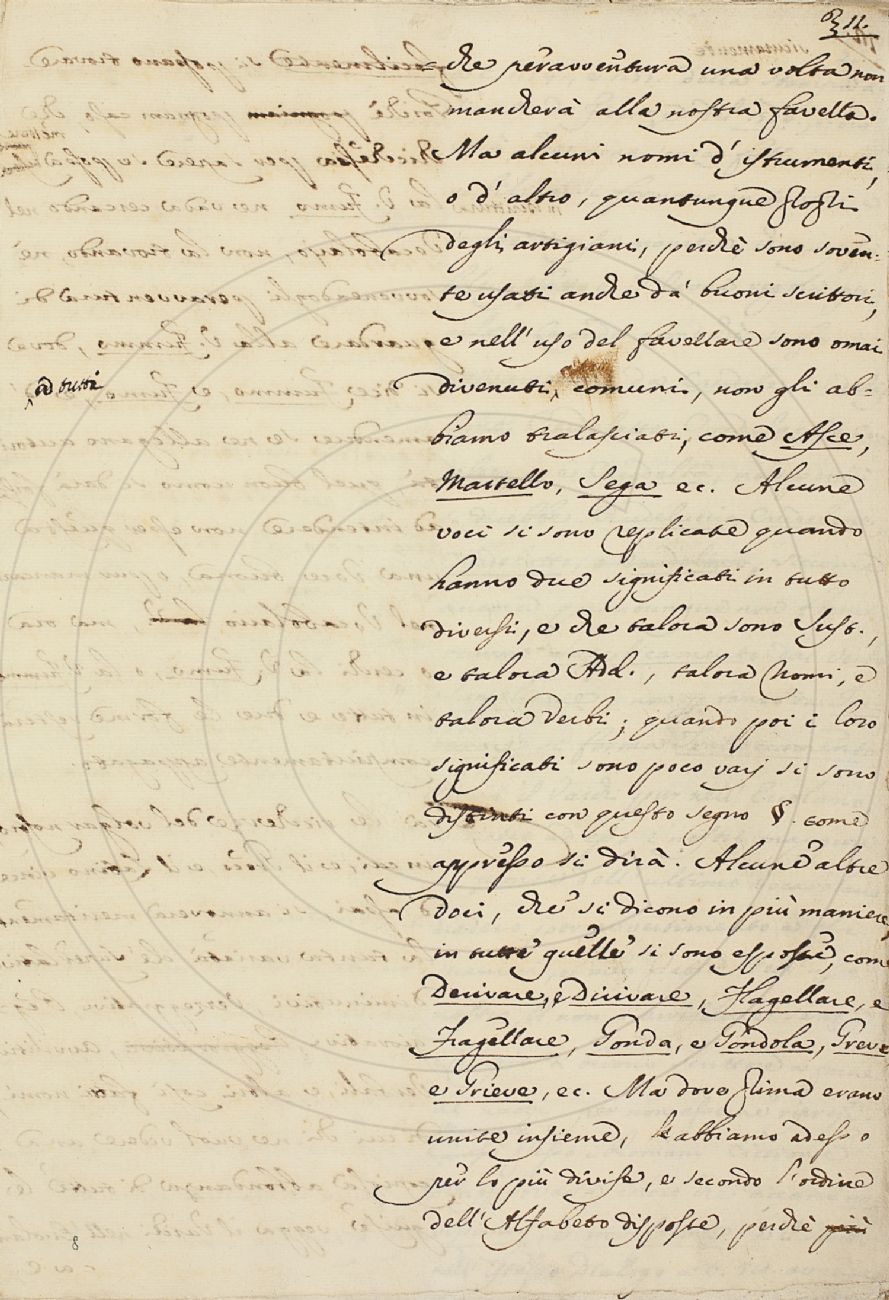 311.
che peravventura una volta non
mancherà alla nostra favella.
Ma alcuni nomi d' istrumenti,
o d' altro, quantunque proprj
degli artigiani, perchè sono soven-
te usati anche da' buoni scrittori,
e nell' uso del favellare sono omai
divenuti, comuni, non gli ab-
a tutti
biamo tralasciati, come Asce,
Martello, Sega ec. Alcune
voci si sono replicate quando
hanno due significati in tutto
diversi, e che talora sono Sust.,
e talora Add., talora Nomi, e
talora Verbi; quando poi i loro
significati sono poco varj si sono
distinti con questo segno §. come
appresso si dirà. Alcune altre
Voci, che si dicono in più maniere,
in tutte quelle si sono esposte, come
Derivare, e Dirivare, Flagellare, e
Fragellare, Gonda, e Gondola, Greve
e Grieve, ec. Ma dove prima erano
unite insieme, le abbiamo adesso
per lo più divise, e secondo l' ordine
dell' Alfabeto disposte, perchè più
8